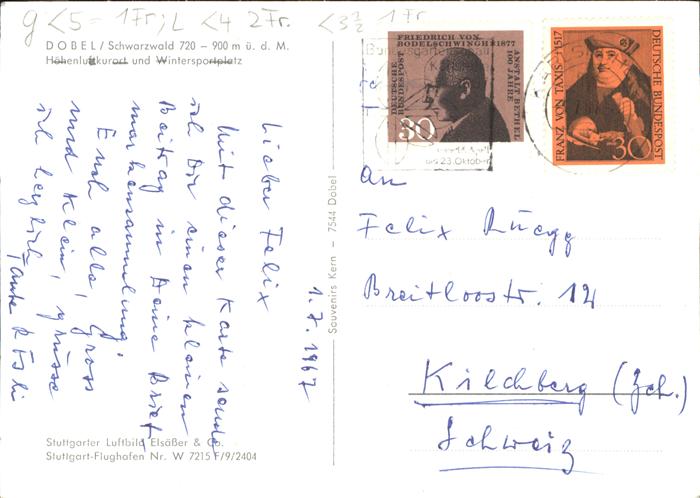 g <5 = 1 Fr; L <4 2 Fr. <3½ 1 Fr
DOBEL / Schwarzwald 720 – 900 m ü. d. M.
Höhenluftkurort und Wintersportplatz
1.7.1967
Lieber Felix
Mit dieser Karte sende
ich Dir einen kleinen
Beitrag in Deine Brief-
markensammlung.
Euch alle, Gross
und Klein, grüsse
ich herzlich, Tante Rösli
Stuttgarter Luftbild Elsäßer & Co.
Stuttgart-Flughafen Nr. W 7215 F/9/2404
Souvenirs Kern – 7544 Dobel
FRIEDRICH VON
BODELSCHWINGH 1877
DEUTSCHE
BUNDESPOST
100 JAHRE
ANSTALT BETHEL
30
Bundesgartenschau
bis 23. Oktober
FRANZ VON TAXIS – 1517
DEUTSCHE BUNDESPOST
30
An
Felix Rüegg
Breitloostr. 12
Kilchberg (Zch.)
Schweiz